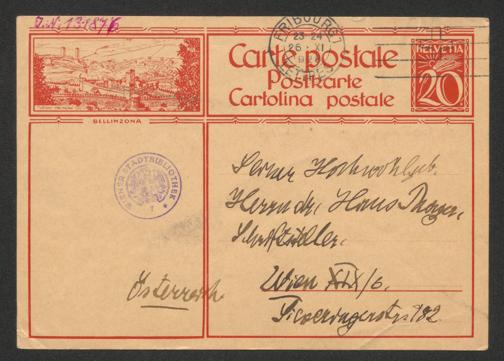 J.N. 131876
FRIBOURG
23-24
26 XI
Carte postale
Postkarte
Cartolina postale
HELVETIA
20
BELLINZONA
WIENER STADTBIBLIOTHEK
Seiner Hochwohlgeb.
Herrn Dr. Hans
Schriftsteller.
Wien XIX/6.
Österreich
182.